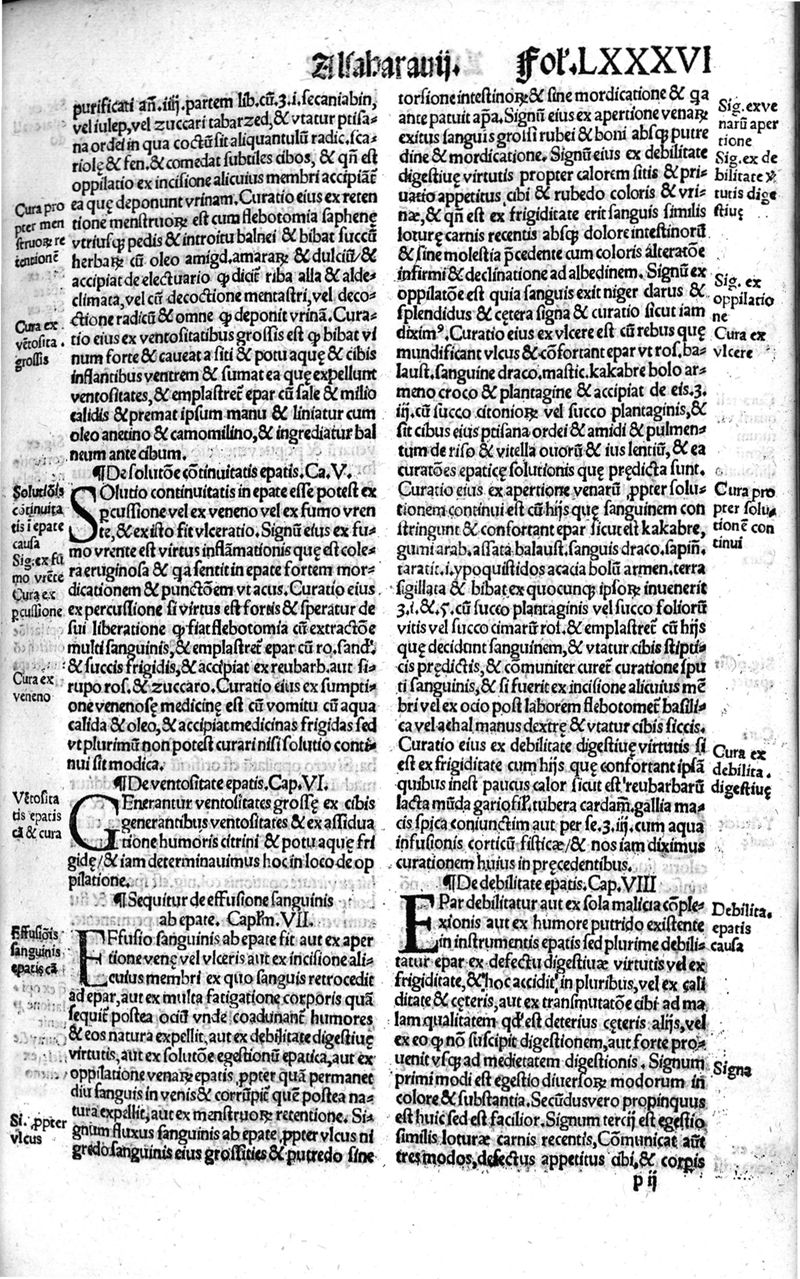 Alsabarauij. Fol'.LXXXVI
purificati añ. iiij. partem lib. cũ. 3. i. secaniabin,
vel iulep, vel zuccari tabarzed, & vtatur ptisa-
na ordei in qua coctũ sit aliquantulũ radic. sca-
riolę & fen. & comedat subtiles cibos, & qñ est
oppilatio ex incisione alicuius membri accipiat̃
ea quę deponunt vrinam. Curatio eius ex reten
tione menstruoꝝ est cum flebotomia saphenę
vtriusqꝫ pedis & introitu balnei & bibat succũ
herbaꝝ cũ oleo amigd. amaraꝝ & dulciũ/ &
accipiat de electuario ꝙ dicit̃ riba alla & alde-
climata, vel cũ decoctione mentastri, vel deco-
ctione radicũ & omne ꝙ deponit vrinã. Cura-
tio eius ex ventositatibus grossis est ꝙ bibat vi
num forte & caueat a siti & potu aquę & cibis
inflantibus ventrem & sumat ea quę expellunt
ventositates, & emplastret̃ epar cũ sale & milio
calidis & premat ipsum manu & liniatur cum
oleo anetino & camomilino, & ingrediatur bal
neum ante cibum.
¶De solutõe cõtinuitatis epatis. Ca. V.
SOlutio continuitatis in epate esse potest ex
ꝑcussione vel ex veneno vel ex fumo vren
te, & ex isto fit vlceratio. Signũ eius ex fu-
mo vrente est virtus inflãmationis quę est cole-
ra eruginosa & qa sentit in epate fortem mor-
dicationem & punctõem vt acus. Curatio eius
ex percussione si virtus est fortis & speratur de
sui liberatione ꝙ fiat flebotomia cũ extractõe
multi sanguinis, & emplastret̃ epar cũ ro. sand.
& succis frigidis, & accipiat ex reubarb. aut si-
rupo ros. & zuccaro. Curatio eius ex sumpti-
one venenosę medicinę est cũ vomitu cũ aqua
calida & oleo, & accipiat medicinas frigidas sed
vt plurimũ non potest curari nisi solutio conti-
nui sit modica.
¶De ventositate epatis. Cap. VI.
GEnerantur ventositates grossę ex cibis
generantibus ventositates & ex assidua
tione humoris citrini & potu aquę fri
gidę/ & iam determinauimus hoc in loco de op
pilatione.
¶Sequitur de effusione sanguinis
ab epate. Capl'm. VII.
EFfusio sanguinis ab epate fit aut ex aper
tione venę vel vlceris aut ex incisione ali-
cuius membri ex quo sanguis retrocedit
ad epar, aut ex multa fatigatione corporis quã
sequit̃ postea ociũ vnde coadunant̃ humores
& eos natura expellit, aut ex debilitate digestiuę
virtutis, aut ex solutõe egestionũ epatica, aut ex
oppilatione venaꝝ epatis ꝓpter quã permanet
diu sanguis in venis & corrũpit̃ quẽ postea na-
tura expellit, aut ex menstruoꝝ retentione. Si-
gnum fluxus sanguinis ab epate ꝓpter vlcus ni
gredo sanguinis eius grossities & putredo sine
Cura pro
pter men
struoꝝ re
tentionẽ
Cura ex
vẽtosita.
grossis
Solutiõis
cõtinuita
tis i epate
causa
Sig. ex fu
mo vrẽte
Cura ex
ꝑcussione
Cura ex
veneno
Vẽtosita
tis epatis
cã & cura
Effusiõis
sanguinis
epatis cã
Si. ꝓpter
vlcus
torsione intestinoꝝ & sine mordicatione & qa
ante patuit apa. Signũ eius ex apertione venaꝝ
exitus sanguis grossi rubei & boni absqꝫ putre
dine & mordicatione. Signũ eius ex debilitate
digestiuę virtutis propter calorem sitis & pri-
uatio appetitus, cibi & rubedo coloris & vri-
næ, & qñ est ex frigiditate erit sanguis similis
loturę carnis recentis absqꝫ dolore intestinorũ
& sine molestia p̃cedente cum coloris alteratõe
infirmi & declinatione ad albedinem. Signũ ex
oppilatõe est quia sanguis exit niger darus &
splendidus & cętera signa & curatio sicut iam
diximꝰ. Curatio eius ex vlcere est cũ rebus quę
mundificant vlcus & cõfortant epar vt ros. ba-
laust. sanguine draco. mastic. kakabre bolo ar-
meno croco & plantagine & accipiat de eis. 3.
iij. cũ succo citonioꝝ vel succo plantaginis, &
sit cibus eius ptisana ordei & amidi & pulmen-
tum de riso & vitella ouorũ & ius lentiũ, & ea
curatões epaticę solutionis quę prędicta sunt.
Curatio eius ex apertione venarũ ꝓpter solu-
tionem continui est cũ hijs quę sanguinem con
stringunt & confortant epar sicut est kakabre,
gumi arab. assata balaust. sanguis draco. sapiñ.
taratit. i. ypoquistidos acacia bolũ armen. terra
sigillata & bibat ex quocunqꝫ ipsoꝝ inuenerit
3. i. &. 5. cũ succo plantaginis vel succo foliorũ
vitis vel succo cimarũ ros. & emplastret̃ cũ hijs
quę decidunt sanguinem, & vtatur cibis stipti-
cis prędictis, & cõmuniter curet̃ curatione spu
ti sanguinis, & si fuerit ex incisione alicuius mẽ
bri vel ex ocio post laborem flebotomet̃ basili-
ca vel aehal manus dextrę & vtatur cibis siccis.
Curatio eius ex debilitate digestiuę virtutis si
est ex frigiditate cum hijs quę confortant ipsã
quibus inest paucus calor sicut est reubarbarũ
lacta mũda gariofil'. tubera cardam. gallia ma-
cis spica coniunctim aut per se. 3. iij. cum aqua
infusionis corticũ fisticæ/ & nos iam diximus
curationem huius in pręcedentibus.
¶De debilitate epatis. Cap. VIII
EPar debilitatur aut ex sola malicia cõple-
xionis aut ex humore putrido existente
in instrumentis epatis sed plurime debili-
tatur epar ex defectu digestiuæ virtutis vel ex
frigiditate, & hoc accidit in pluribus, vel ex cali
ditate & ceteris, aut ex transmutatõe cibi ad ma
lam qualitatem qd' est deterius cęteris alijs, vel
ex eo ꝙ nõ suscipit digestionem, aut forte pro-
uenit vsqꝫ ad medietatem digestionis. Signum
primi modi est egestio diuersoꝝ modorum in
colore & substantia. Secũdus vero propinquus
est huic sed est facilior. Signum tercij est egestio
similis loturæ carnis recentis, Cõmunicat aũt
tres modos, defectus appetitus cibi, & corpis
p ij
Sig. ex ve
narũ aper
tione
Sig. ex de
bilitate v̾
tutis dige
stiuę
Sig. ex
oppilatio
ne
Cura ex
vlcere
Cura pro
pter solu-
tionẽ con
tinui
Cura ex
debilita.
digestiuę
Debilita.
epatis
causa
Signa